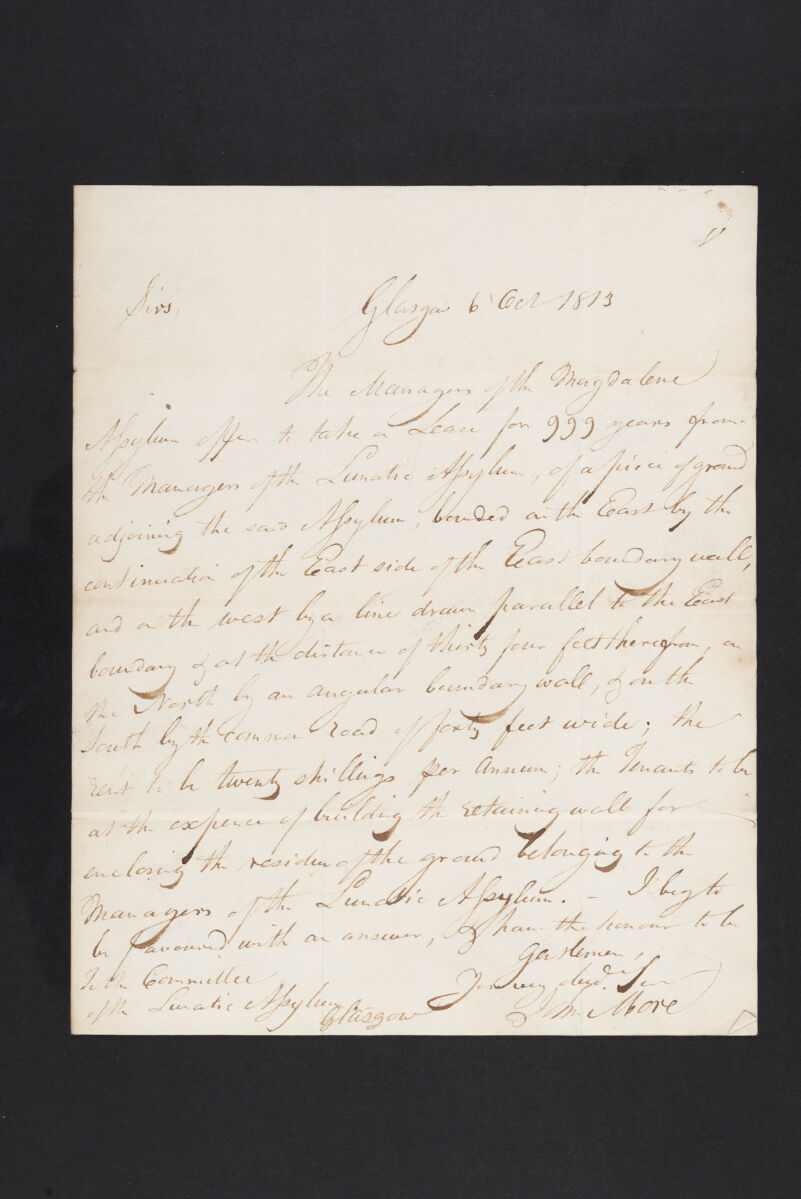 Glasgow 6 Oct 1813
Sirs,
The Managers of the Magdalene
Assylum offer to take a Lease for 999 years from
the Managers of the Lunatic Assylum, of a piece of ground
adjoining the said Assylum, bounded on the East by the
continuation of the East side of the East boundary wall,
and on the west by a line drawn parallel to the East
boundary & at the distance of thirty four feet therefrom, on
the North by an angular boundary wall, & on the
South by the common road of forty feet wide; the
rent to be twenty shillings per Annum; the Tenants to be
at the expence of building the retaining wall for
enclosing the residue of the ground belonging to the
Managers of the Lunatic Assylum. - I beg to
be favoured with an answer, & have the honour to be
Gentlemen,
Your very obed. Ser
John More
To the Committee
of the Lunatic Assylum
Glasgow